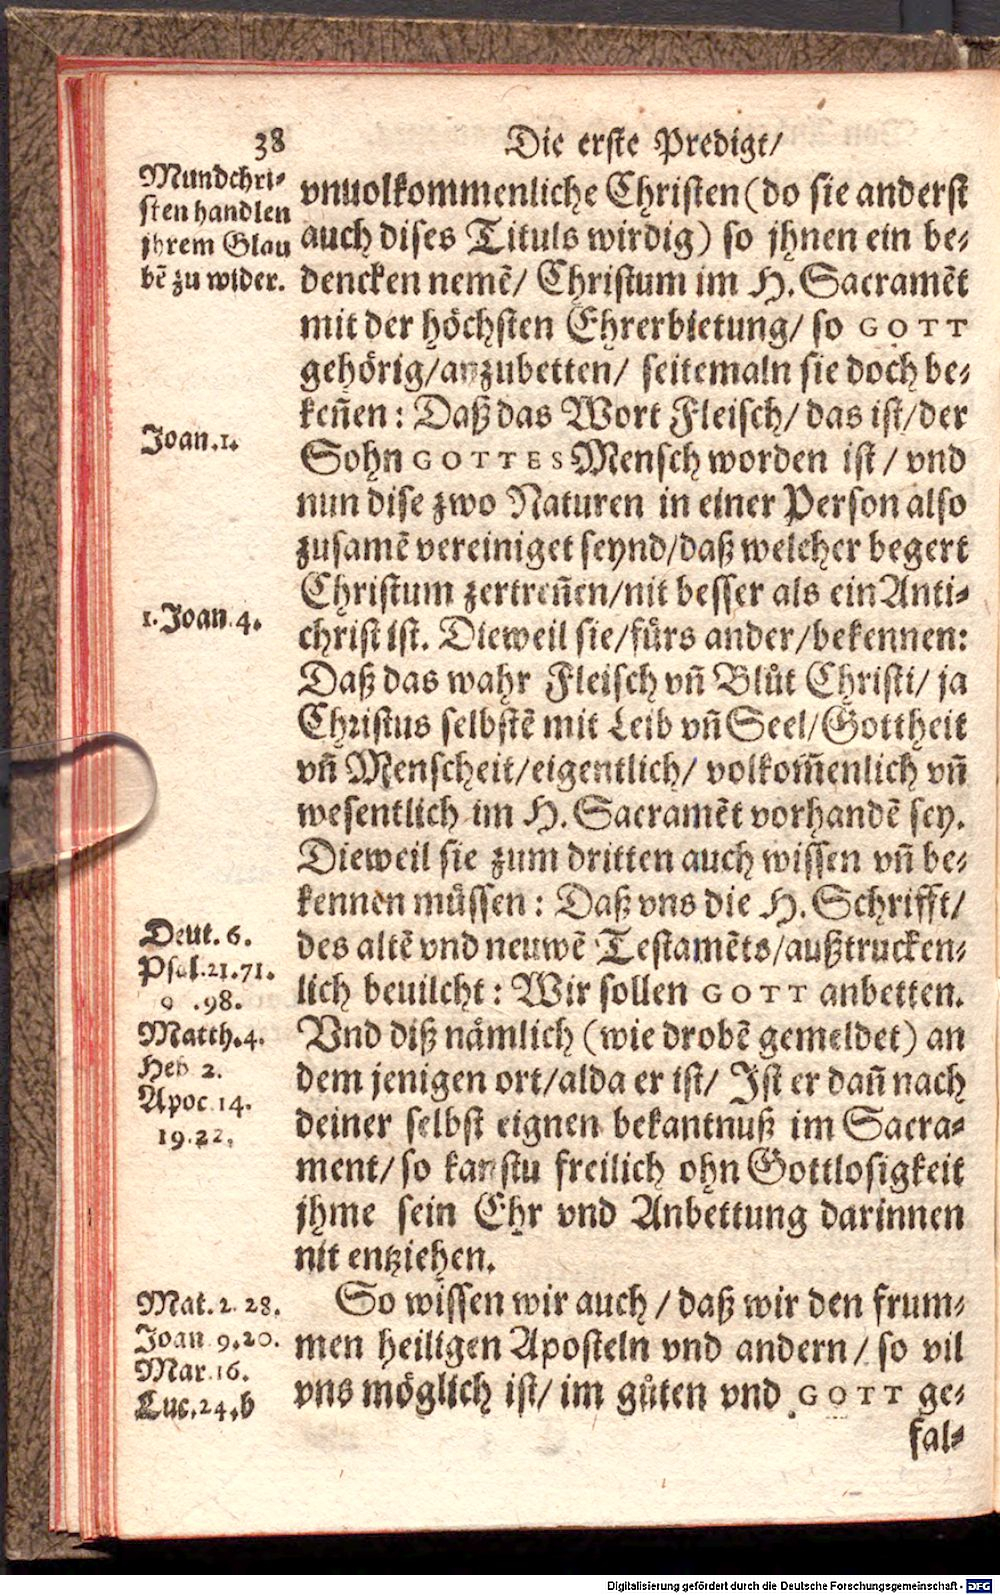 38
Die erste Predigt/
Mundchri⸗
sten handlen
jhrem Glau
bẽ zu wider.
vnuolkommenliche Christen (do sie anderst
auch dises Tituls wirdig) so jhnen ein be⸗
dencken nemẽ/ Christum im H. Sacramẽt
mit der höchsten Ehrerbietung/ so GOTT
gehörig/anzubetten/ seitemaln sie doch be⸗
keñen: Daß das Wort Fleisch/ das ist/der
Joan.1.
Sohn GOTTES Mensch worden ist/ vnd
nun dise zwo Naturen in einer Person also
zusamẽ vereiniget seynd/daß welcher begert
Christum zertreñen/nit besser als ein Anti⸗
1.Joan.4.
christ ist. Dieweil sie/fürs ander/bekennen:
Daß das wahr Fleisch vñ Blůt Christi/ ja
Christus selbstẽ mit Leib vñ Seel/Gottheit
vñ Menscheit/eigentlich/ volkom̃enlich vñ
wesentlich im H. Sacramẽt vorhandẽ sey.
Dieweil sie zum dritten auch wissen vñ be⸗
kennen müssen: Daß vns die H. Schrifft/
Deut. 6.
Psal.21.71.
.98.
Matth.4.
Heb 2.
Apoc.14.
19.22.
des altẽ vnd neuwẽ Testamẽts/außtrucken⸗
lich beuilcht: Wir sollen GOTT anbetten.
Vnd diß nämlich (wie drobẽ gemeldet) an
dem jenigen ort/alda er ist/ Ist er dañ nach
deiner selbst eignen bekantnuß im Sacra⸗
ment/ so kanstu freilich ohn Gottlosigkeit
jhme sein Ehr vnd Anbettung darinnen
nit entziehen.
Mat. 2. 28.
Joan 9.20.
Mar.16.
Luc.24.b
So wissen wir auch / daß wir den frum⸗
men heiligen Aposteln vnd andern / so vil
vns möglich ist/ im gůten vnd GOTT ge⸗
fal⸗
Digitalisierung gefördert durch die Deutsche Forschungsgemeinschaft - DFG